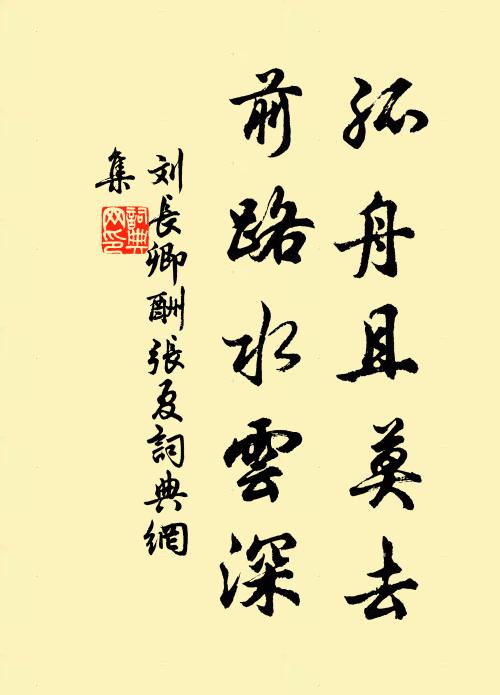 孤舟且莫去
前路水雲深
刘長卿酬張夏詞典網
集
詞典网印